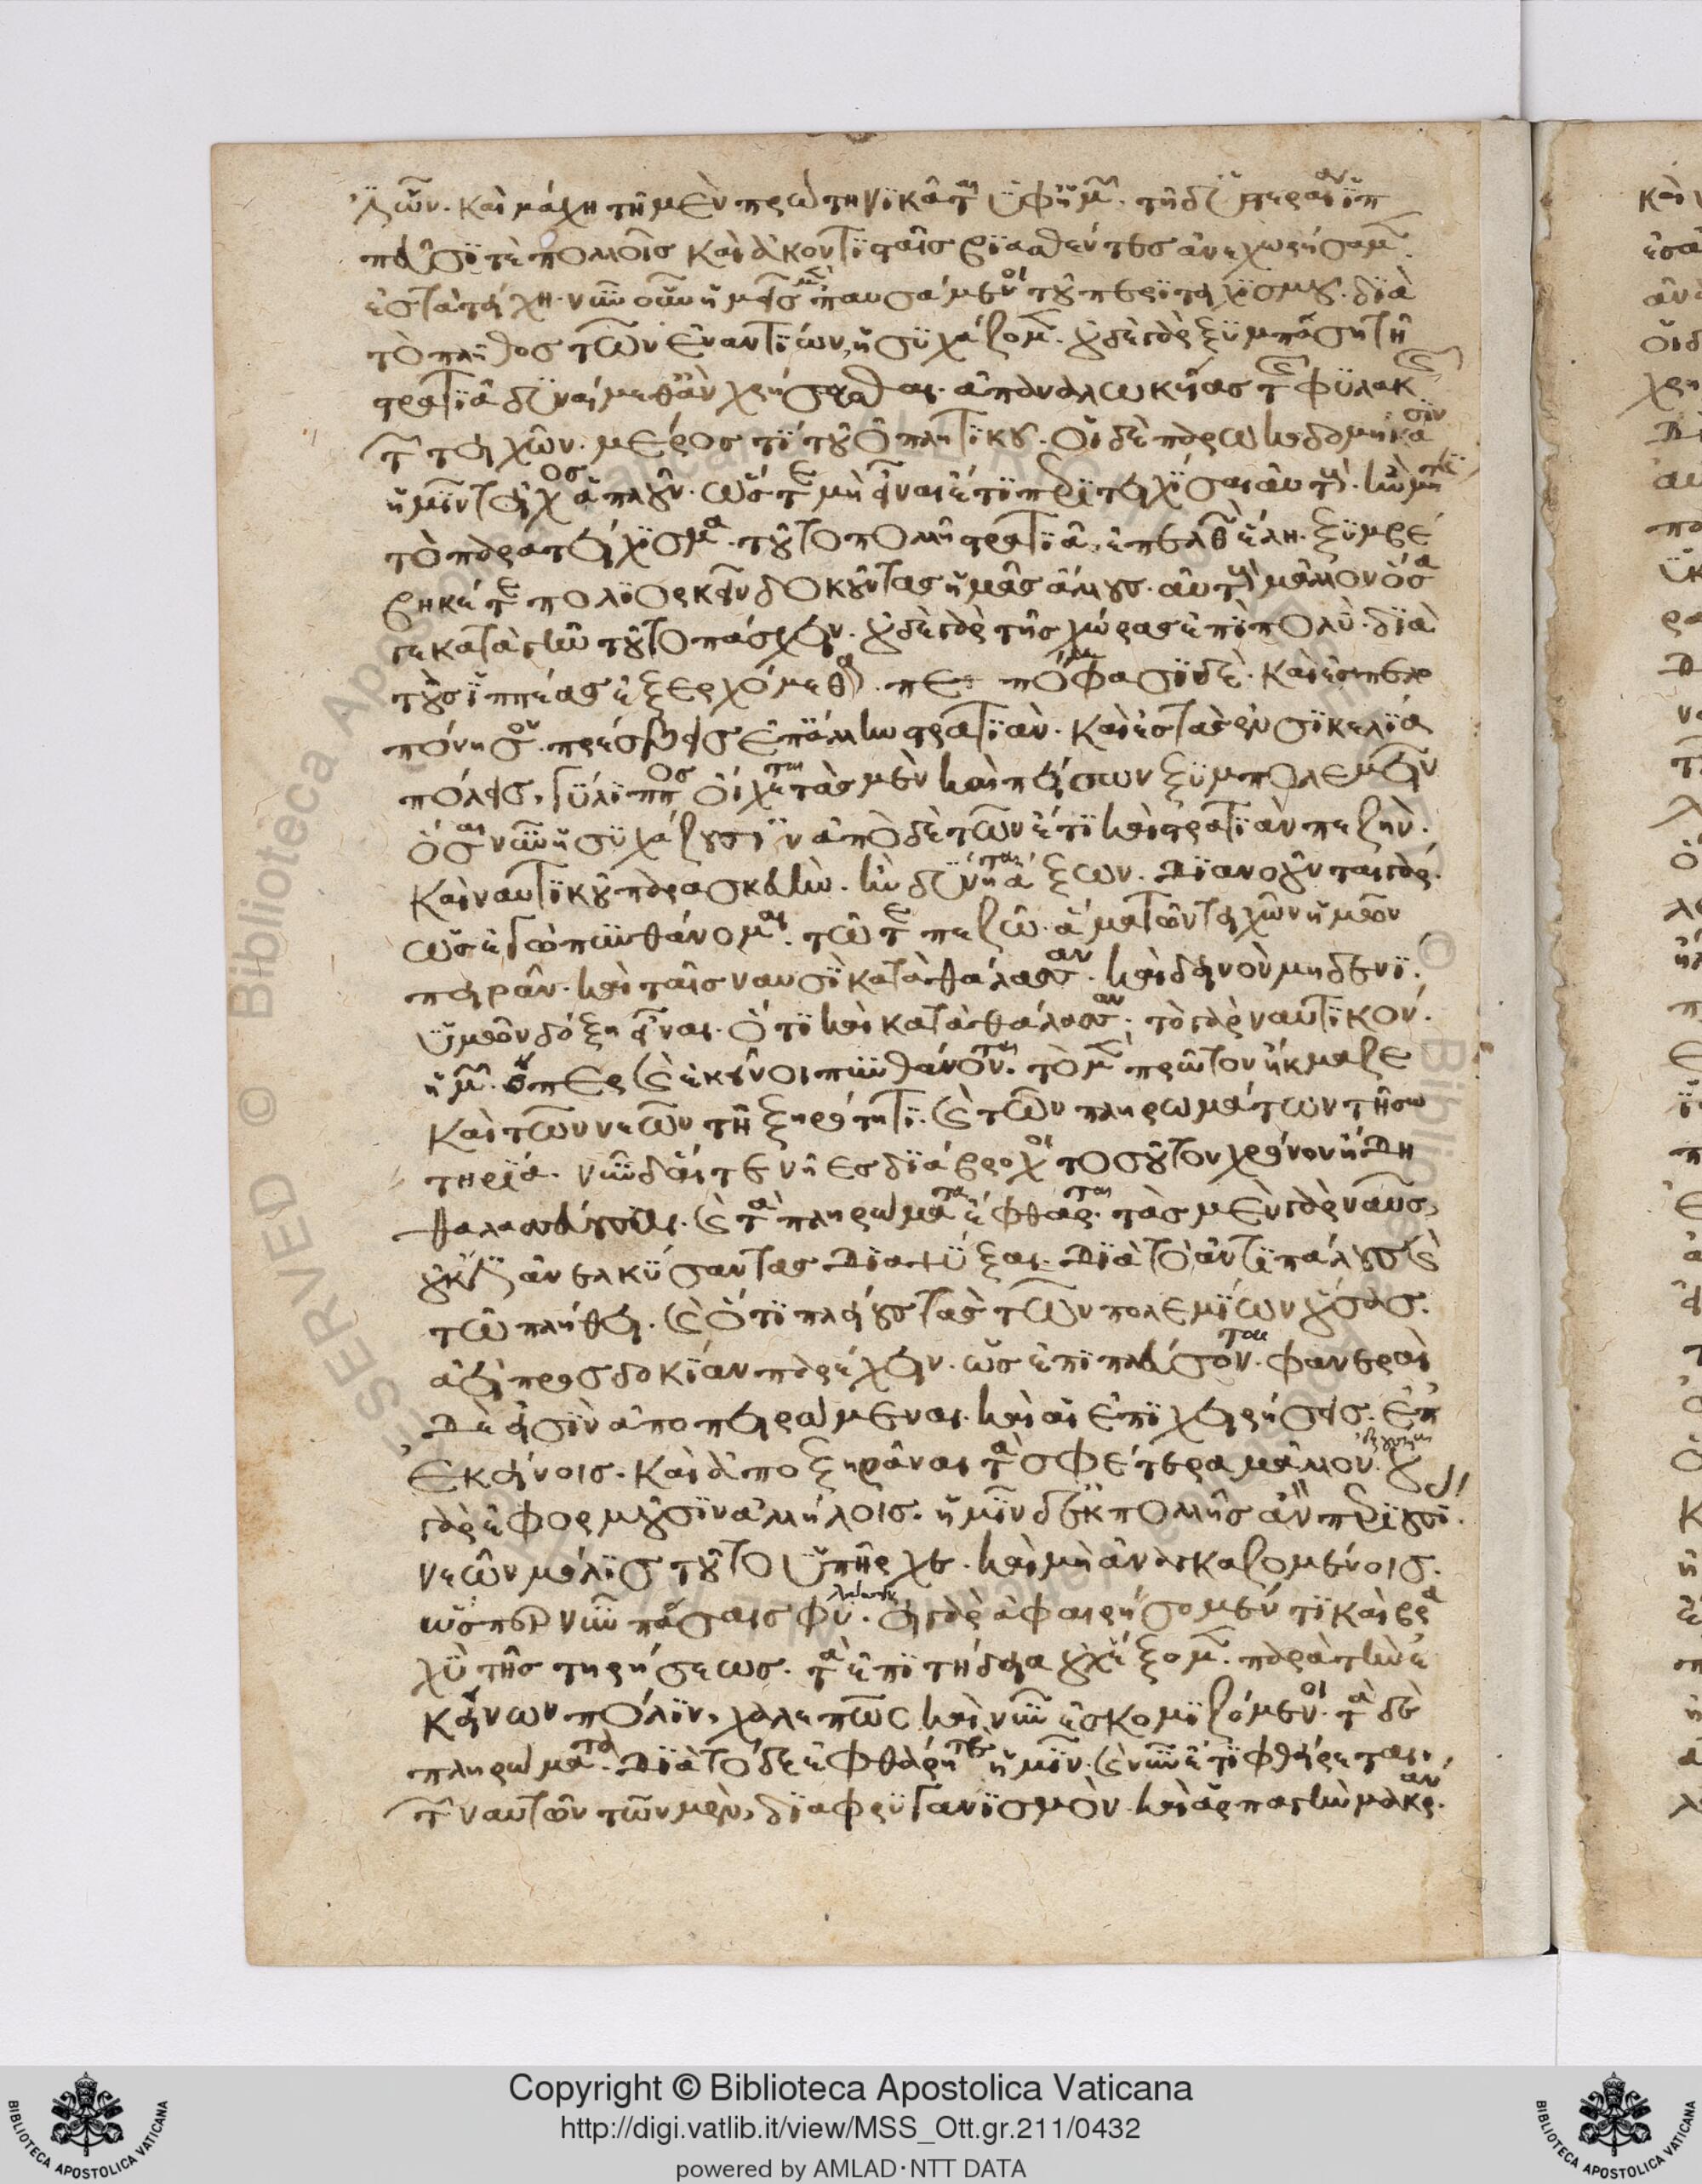 λλων. καὶ μάχη τῆ μὲν πρώτη νϊκᾶται ὑφ' ἡμῶν. τῆ δ' ὑστεραία ἱπ
πεῦσϊ τὲ πολλοῖς καὶ ἀκοντϊσταῖς βϊασθέντες ἀνεχωρήσαμεν.
ἐς τὰ τείχη. νῦν οὖν ἡμεῖς μὲν παυσάμενοι τοῦ περϊτειχϊσμοῦ. δϊὰ
τὸ πλῆθος τῶν ἐναντϊων, ἡσϋχάζομεν. οὐδὲ γὰρ ξϋμπάση τῆ
στρατϊᾶ δϋναίμεθ' ἂν χρήσασθαι. ἀπαναλωκυίας τῆς φϋλακῆς
τῶν τειχῶν. μέρος τϊ τοῦ ὁπλητϊκοῦ. οἱ δὲ παρωκοδομήκασϊν
ἡμῖν τεῖχος ἁπλοῦν. ὥστε μὴ εἶναι ἔτϊ περϊτειχϊσαι αὐτούς. ἢν μή τϊς
τὸ παρατείχϊσμα τοῦτο πολλῆ στρατϊᾶ, ἐπελθὼν ἕλη. ξϋμβέ
βηκέ τε πολϊορκεῖν δοκοῦντας ἡμᾶς ἄλλους. αὐτοὺς μᾶλλον ὅσα
γε κατὰ γῆν τοῦτο πάσχειν. οὐδὲ γὰρ τῆς χώρας ἐπϊπολὺ. δϊὰ
τοὺς ἱππέας ἐξερχόμεθα. πεπόμφασϊ δὲ. καὶ ἐς πελο
πόννησον. πρέσβεις ἐπ' ἄλλην στρατϊὰν. καὶ ἐς τὰς ἐν σϊκελϊα
πόλεις, γϋλϊππος οἴχεται τὰς μὲν καὶ πείσων ξϋμπολεμεῖν
ὅσαι νῦν ἡσϋχάζουσϊν ἀπὸ δὲ τῶν ἔτϊ καὶ στρατϊὰν πεζὴν.
καὶ ναυτϊκοῦ παρασκευὴν. ἢν δϋνηται ἄξων. διανοοῦνται γὰρ.
ὡς ἐγὼ πϋνθάνομαι. τῶ τε πεζῶ. ἅμα τῶν τειχῶν ἡμῶν
πειρᾶν. καὶ ταῖς ναυσϊ κατὰ θάλασσαν. καὶ δεινὸν μηδενϊ.
ὑμῶν δόξη εἶναι. ὅτϊ καὶ κατὰ θάλασσαν. τὸ γὰρ ναυτϊκόν.
ἡμῶν. ὅπερ καὶ ἐκεῖνοι πϋνθάνονται. τὸ μὲν πρῶτον ἤκμαζε
καὶ τῶν νεῶν τῆ ξηρότητϊ. καὶ τῶν πληρωμάτων τῆ σω
τηρϊα. νῦν δὲ αἵ τε νῆες δϊάβροχοι τοσοῦτον χρόνον ἤδη
θαλασσεύουσαι. καὶ τὰ πληρώματα ἔφθαρται. τὰς μὲν γὰρ ναῦς,
οὐκ ἔστϊν ἀνελκϋσαντας διαψϋξαι. διὰ τὸ ἀντϊπάλους καὶ
τῶ πλήθει. καὶ ὅτϊ πλείους τὰς τῶν πολεμϊων οὔσας.
ἀεὶ προσδοκϊαν παρέχειν. ὡς ἐπϊπλεύσονται. φανεραὶ
δὲ εἰσϊν ἀποπειρώμεναι. καὶ αἱ ἐπϊχειρήσεις. ἐπ'
ἐκείνοις. καὶ ἀποξηρᾶναι τὰ σφέτερα μᾶλλον ἐξουσία. οὐ
γὰρ ἐφορμοῦσϊν ἀλλήλοις. ἡμῖν δ' ἐκ πολλῆς ἂν περϊουσϊας
νεῶν μόλϊς τοῦτο ὑπῆρχε. καὶ μὴ ἀναγκαζομένοις.
ὥσπερ νῦν πάσαις φϋλάσσειν. εἰ γὰρ ἀφαιρήσομέν τϊ καὶ βρα
χὺ τῆς τηρήσεως. τὰ ἐπϊτήδεια οὐχ ἕξομεν. παρὰ τὴν ἐ
κείνων πόλϊν, χαλεπῶς καὶ νῦν ἐσκομϊζόμενοι. τὰ δὲ
πληρώματα. διὰ τόδε ἐφθάρη τε ἡμῖν. καὶ νῦν ἔτϊ φθείρεται.
τῶν ναυτῶν τῶν μὲν, δϊὰ φρϋγανϊσμὸν. καὶ ἁρπαγὴν μακρὰν.
Copyright © Biblioteca Apostolica Vaticana
http://digi.vatlib.it/view/MSS_Ott.gr.211/0432
powered by AMLAD·NTT DATA